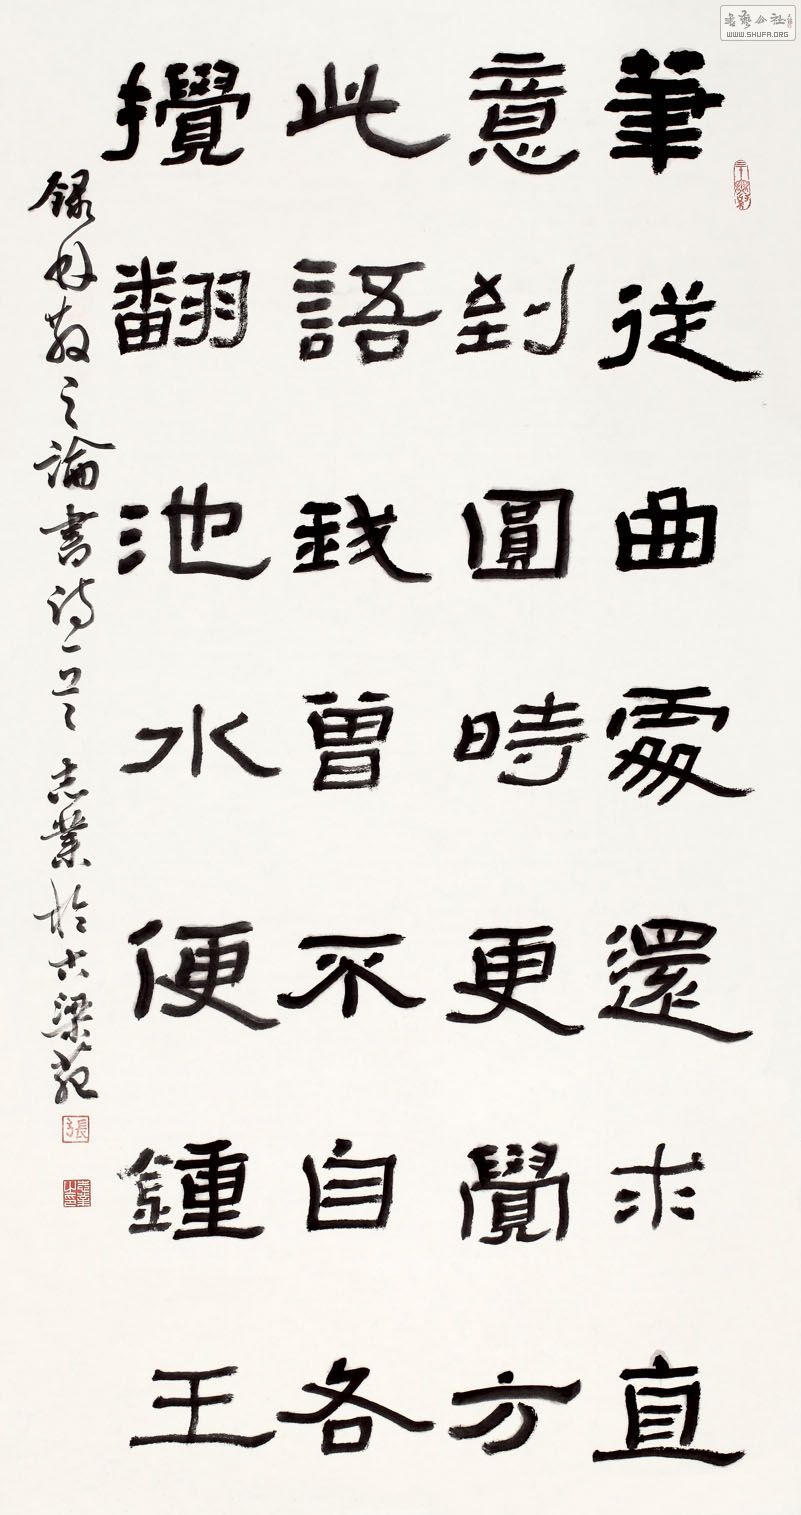 筆從曲處還求直
意到圓時更覺方
此語我曾不自各
攪翻池水便鍾王
錄林散之論書詩一首 志業於古梁苑
張
書藝公社
WWW.SHUFA.ORG